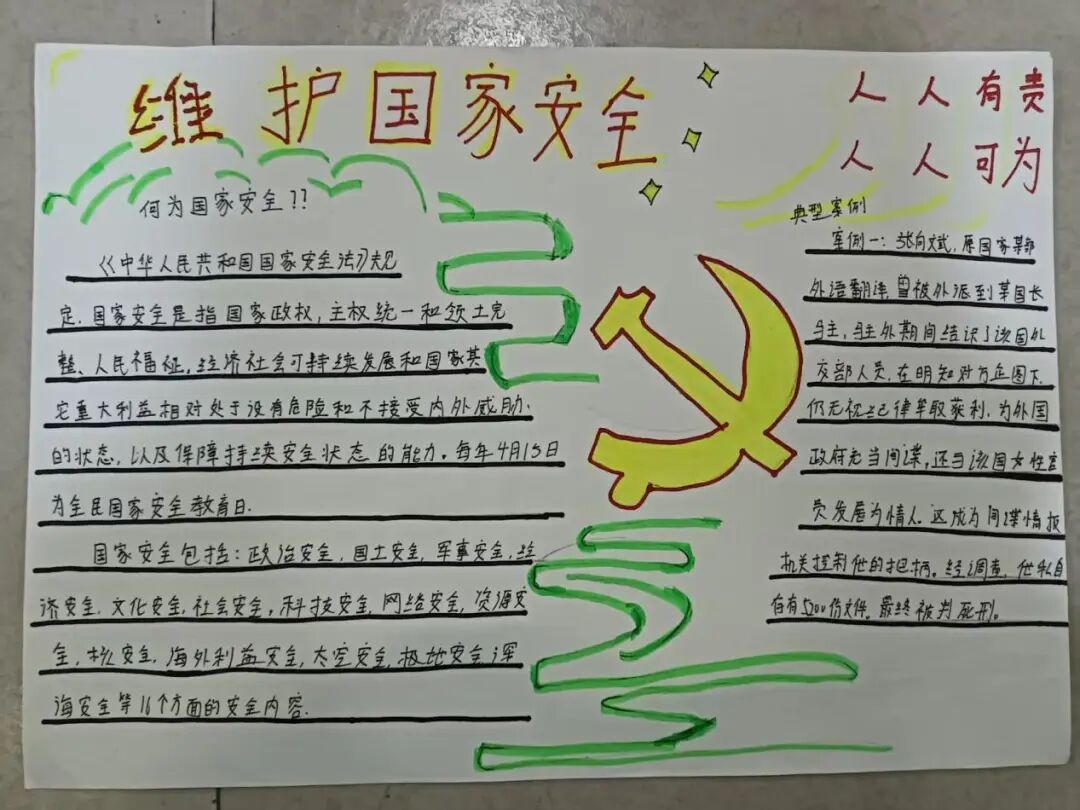 维护国家安全
人人有责
人人可为
何为国家安全??
《《中华人民共和国国家安全法》规
定.国家安全是指国家政权,主权统一和领土完
整、人民福祉,经济社会可持续发展和国家其
它重大利益相对处于没有危险和不接受内外威胁.
的状态,以及保障持续安全状态的能力。每年4月15日
为全民国家安全教育日.
国家安全包括:政治安全,国土安全,军事安全,经
济安全.文化安全,社会安全,科技安全,网络安全,资源安
全,核安全,海外利益安全,太空安全,极地安全深
海安全等16个方面的安全内容.
典型案例
案例一:张向文斌,原国家某部
外语翻译,曾被外派到某国长
驻,驻外期间结识了该国外
交部人员,在明知对方企图下.
仍无视纪律牟取获利.为外国
政府充当间谍,还与该国女性官
员发展为情人.这成为间谍情报
机关控制他的把柄。经调查,他私自
存有500份文件,最终被判死刑。